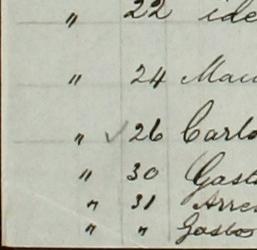 " 22 ide
" 24 Mau
" ✓ 26 Carlo
" 30 Gast
" 31 Arre
" " Gasto